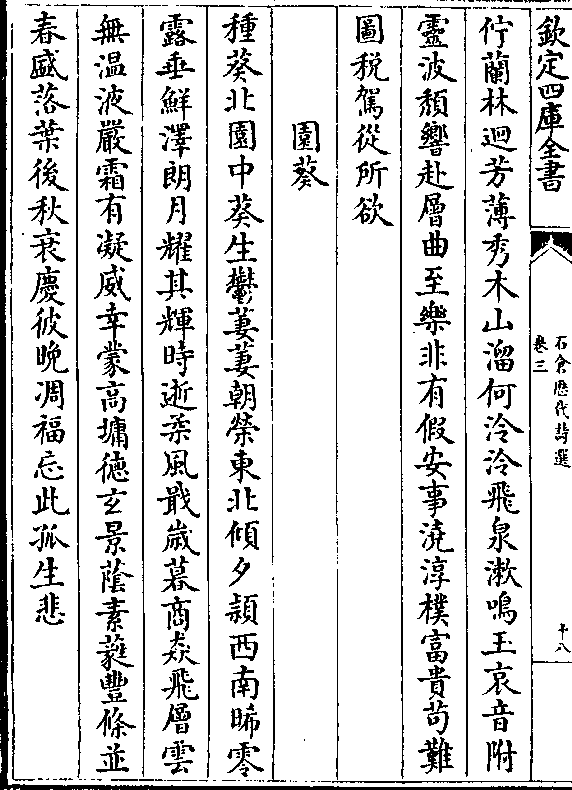 欽定四庫全書
石倉歷代詩選
卷三
十八
佇蘭林迴芳薄秀木山溜何泠泠飛泉漱鳴玉哀音附
靈波頹響赴層曲至樂非有假安事澆淳樸富貴茍難
圖稅駕從所欲
園葵
種葵北園中葵生鬱萋萋朝榮東北傾夕頴西南晞零
露垂鮮澤朗月耀其輝時逝柔風戢歲暮商猋飛層雲
無温液嚴霜有凝威幸蒙高墉德玄景蔭素蕤豐條並
春盛落葉後秋衰慶彼晚凋福忘此孤生悲